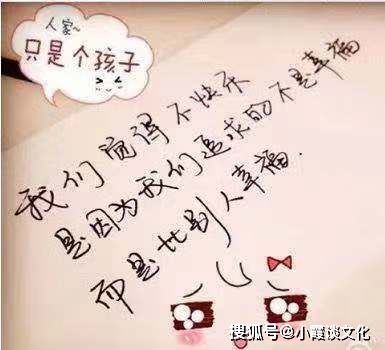 人家~
只是个孩子
我们觉得不快乐
是因为我们追求的不是幸福
而是比别人幸福.
搜狐号@小霞谈文化